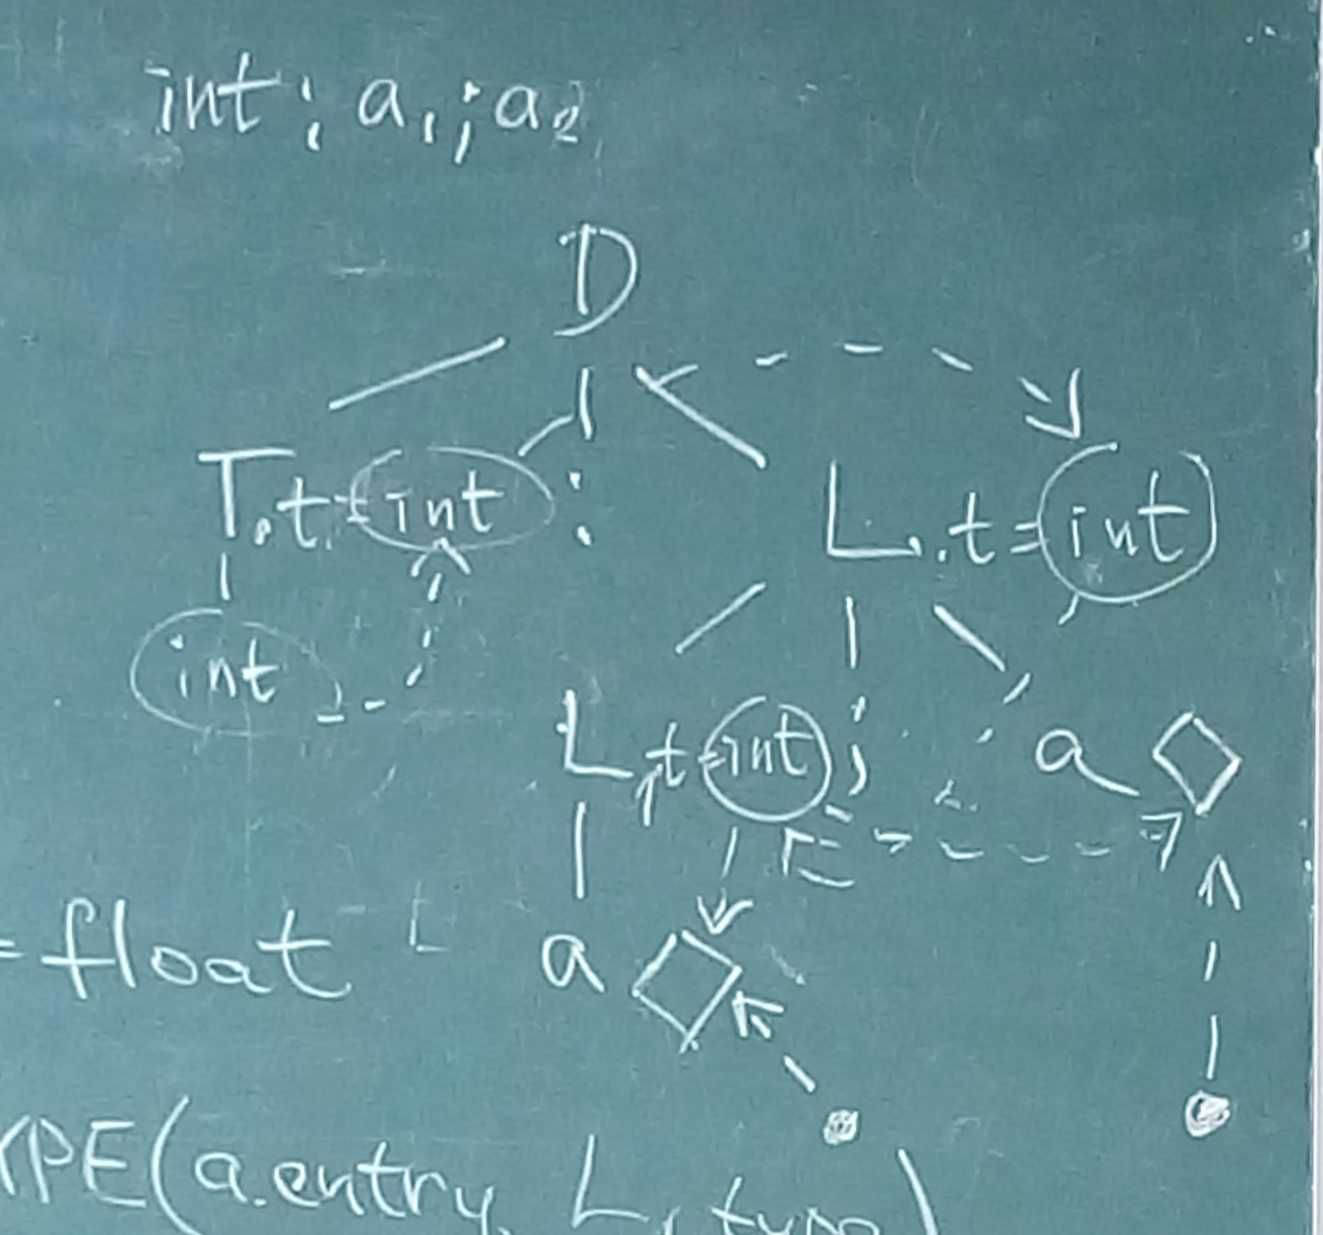 int : a₁ ; a₂
D
T.t = int : L.t = int
int
L₁.t = int ; a
= float a
YPE(a.entry, L.type)